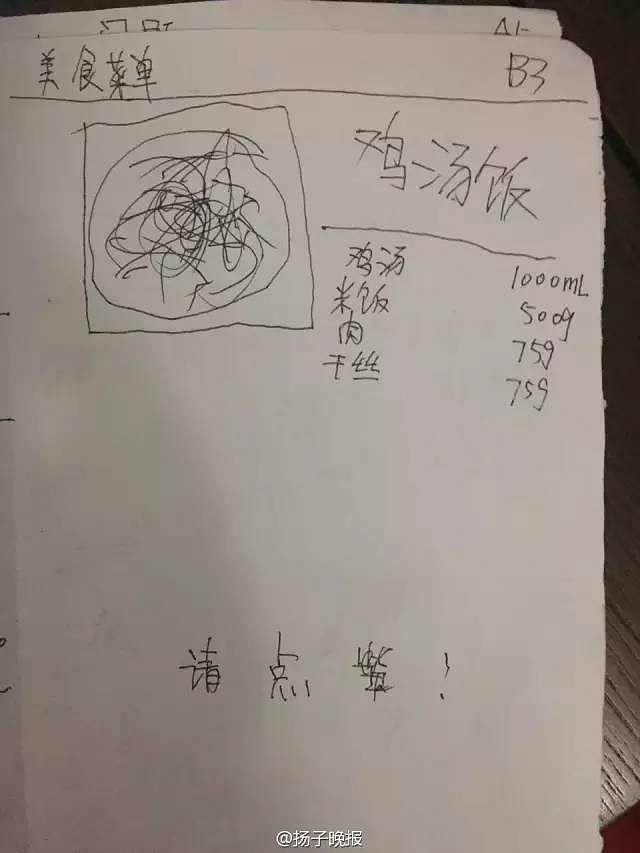 美食菜单 B3
鸡汤饭
鸡汤 1000mL
米饭 500g
肉 75g
干丝 75g
请点赞!
@扬子晚报